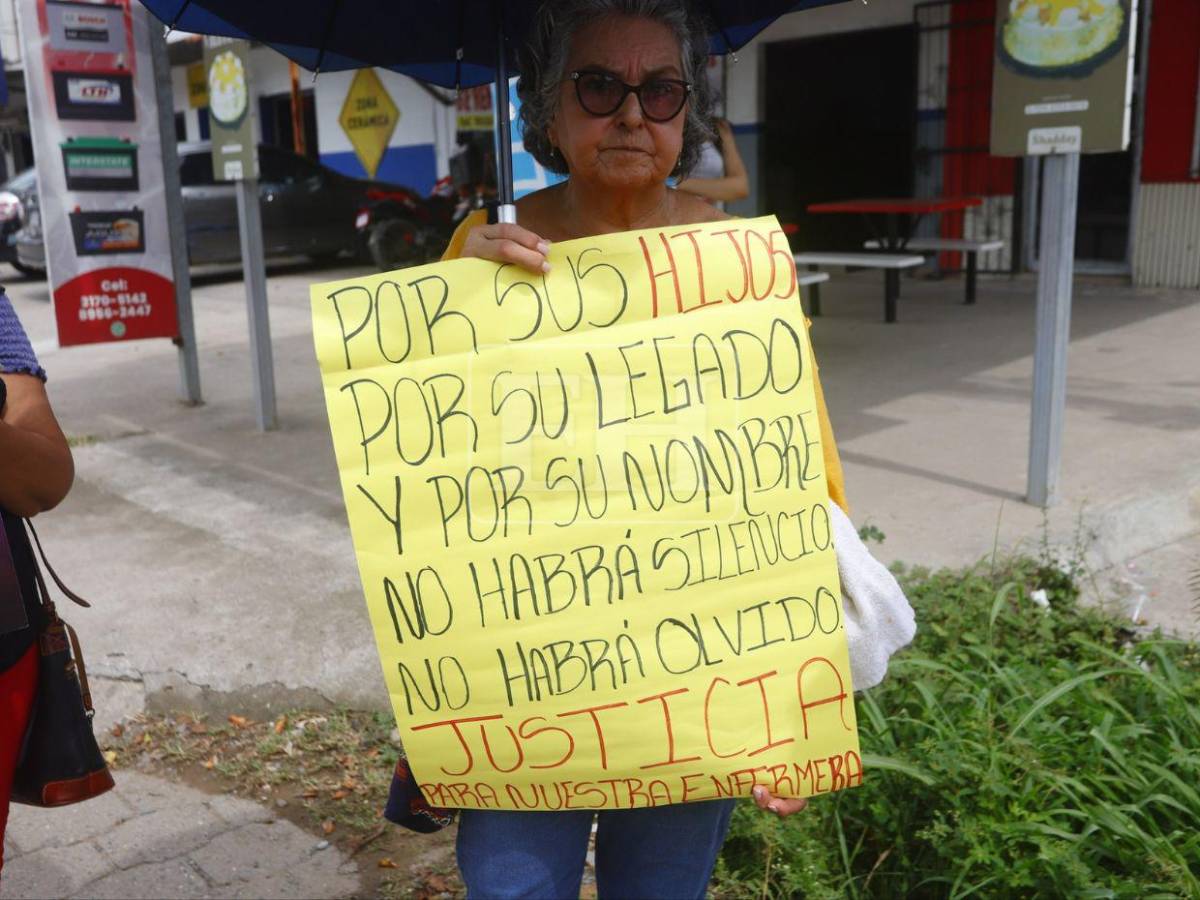 BOSCH
LTH
INTERSTATE
Cel:
3170-5143
8956-2447
ZONA
CERÁMICA
Shadday
POR SUS HIJOS
POR SU LEGADO
Y POR SU NOMBRE
NO HABRÁ SILENCIO.
NO HABRÁ OLVIDO.
JUSTICIA
PARA NUESTRA ENFERMERA